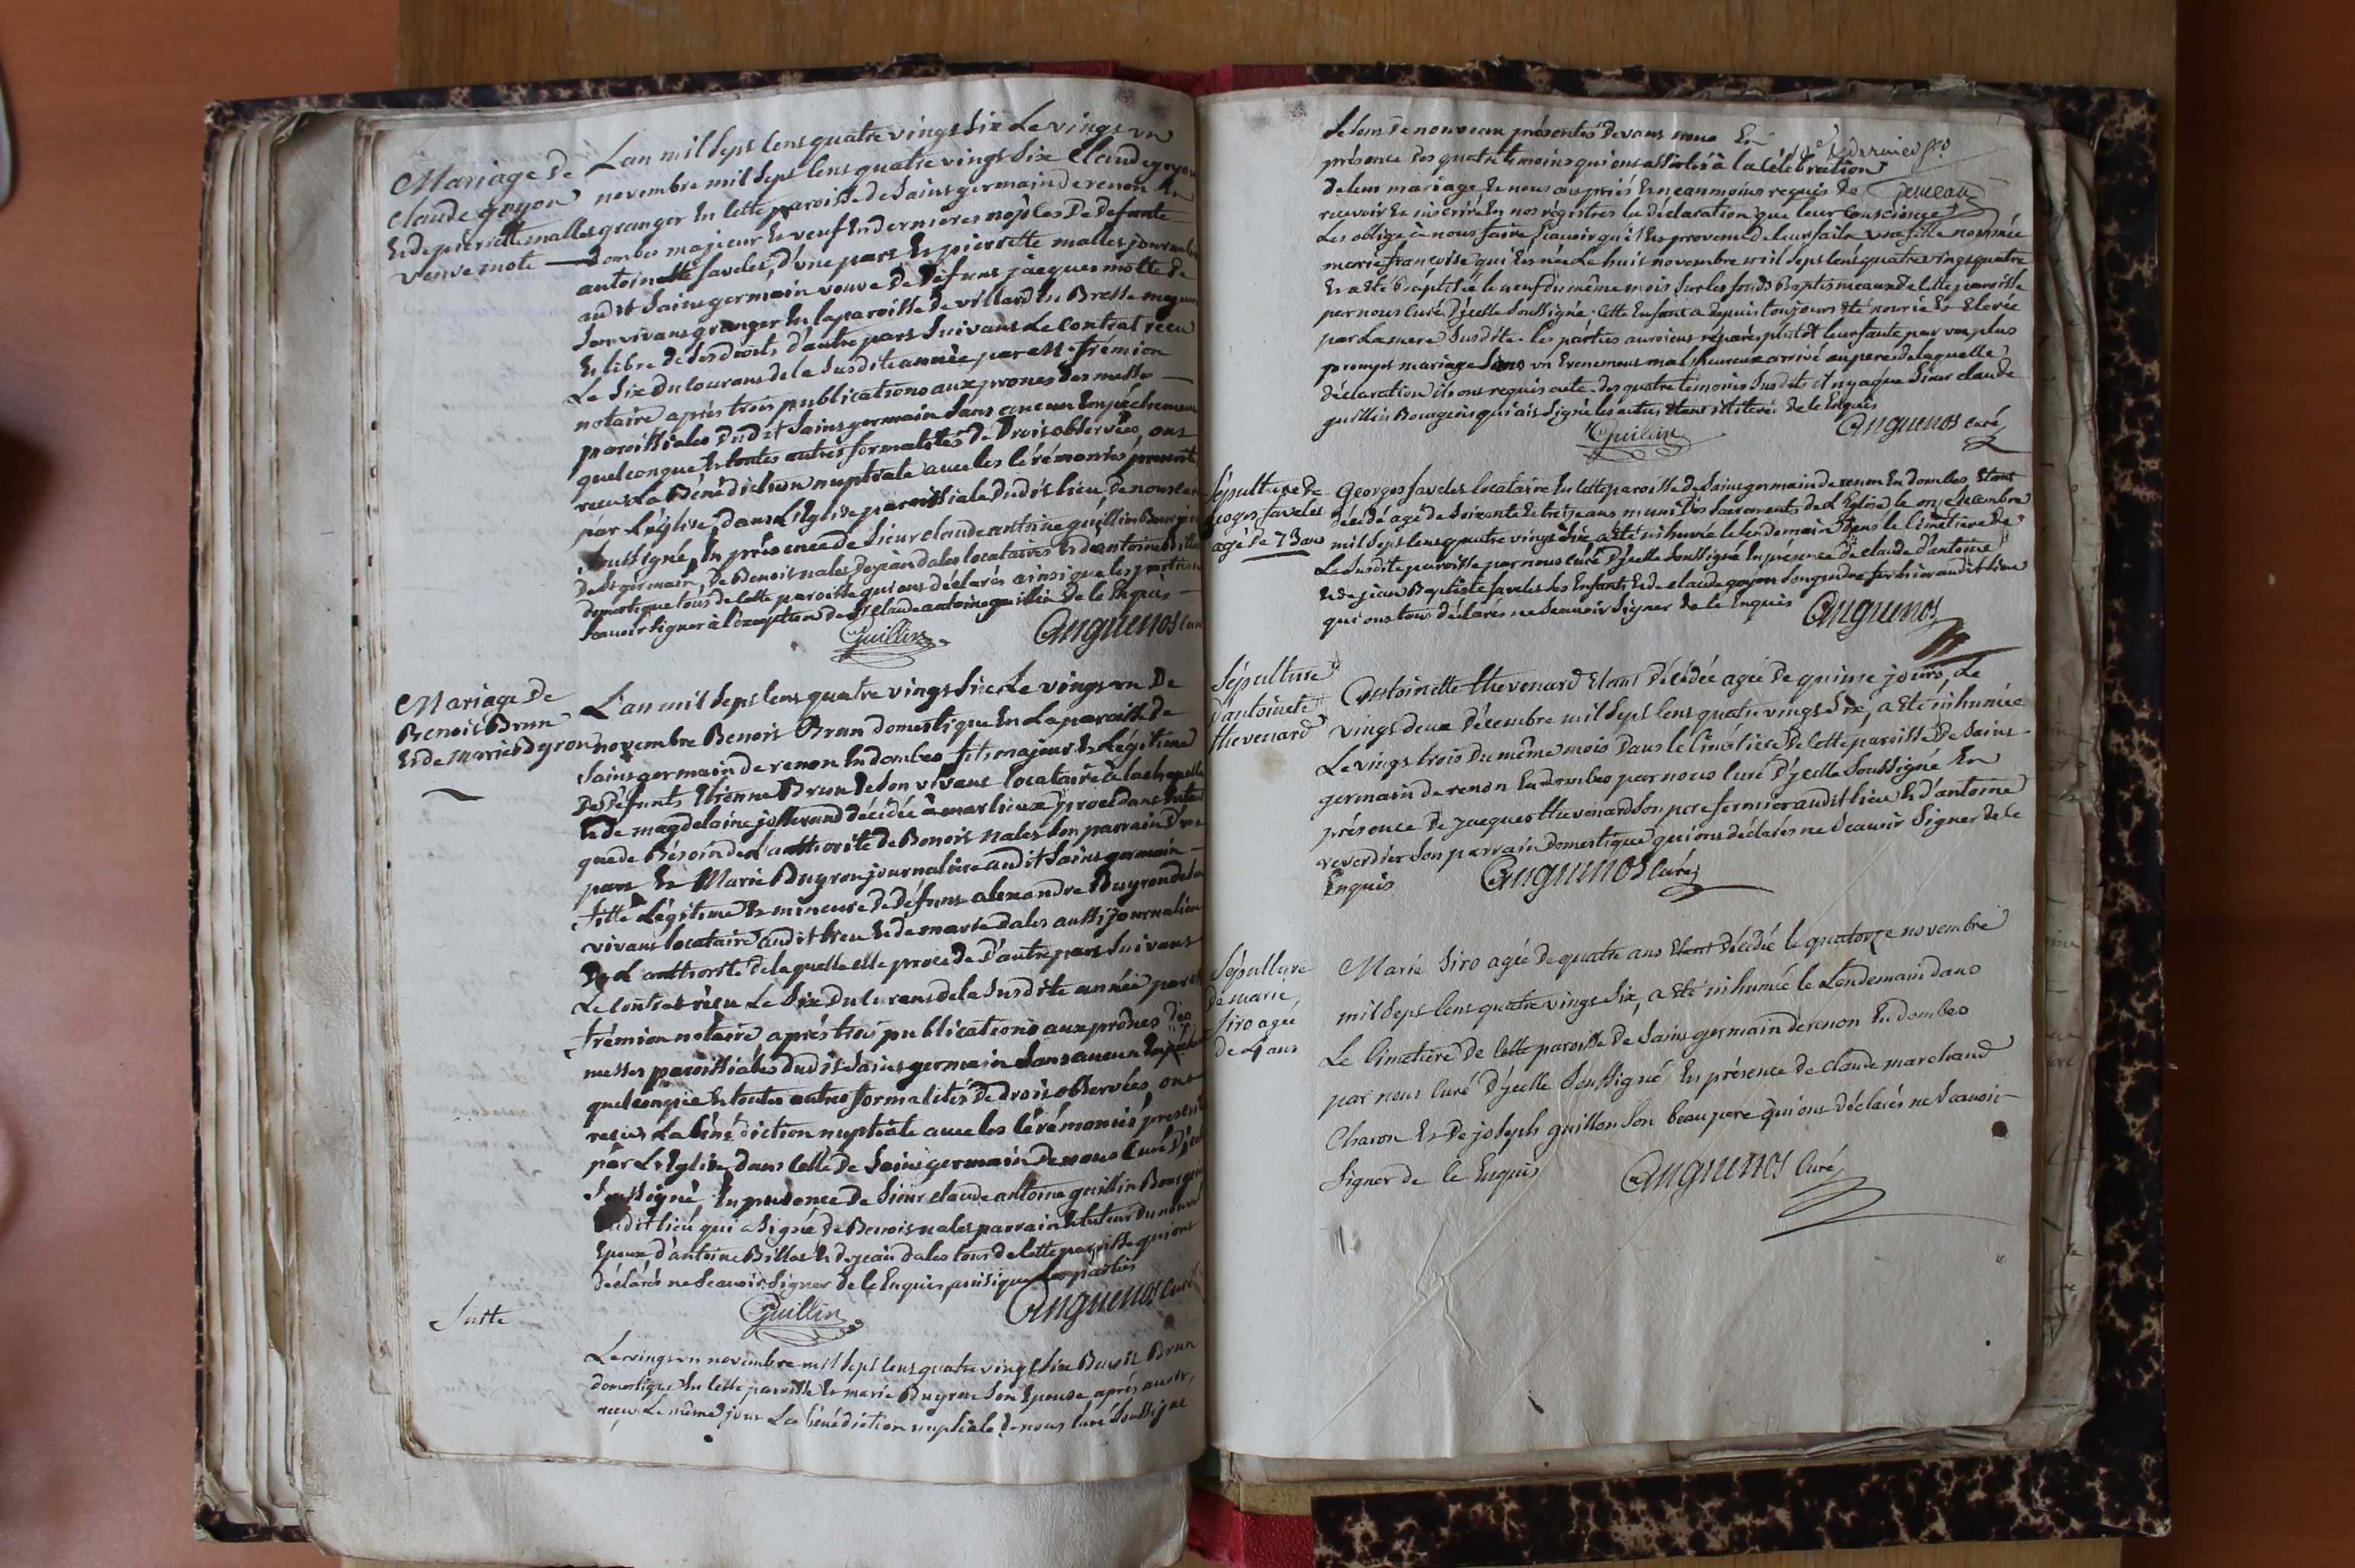 Mariage de
claude goyon
et de pierrette malles
veuve mote
L'an mil sept cens quatre vingt six Le vingt un
novembre mil sept cens quatre vingt six Claude goyon
granger en cette paroisse de saint germain de renon en
dombes majeur et veuf en dernieres noces De defunte
antoinette favelet, d'une part et pierrette malles journaliere
audit saint germain veuve de défunt jacques motte de
son vivant granger en la paroisse de villard en Bresse majeure
et libre de ses droits, d'autre part suivant Le contrat reçu
Le six du courant de la susdite année par Mt frémion
notaire après trois publications aux prones des messes
paroissiales dudit saint germain sans aucun empêchement
quelconque et toutes autres formalités de Droit observées, ont
recus La Bénédiction nuptiale avec les cérémonies prescrites
par L'église, dans L'Eglise paroissiale dudit lieu, de nous curé
soussigné, En présence de sieur claude antoine guillin Bourgeois
de st germain, De Benoit nales De jean dales locataires et d'antoine Billet
domestique tous de cette paroisse qui ont déclarés ainsi que les parties
scavoir signer à l'exception de sr claude antoine guillin De ce Enquis
Guillin Anguenos curé
Mariage De
Benoit Brun
et de Marie Buyron
L'an mil sept cens quatre vingt six Le vingt un De
novembre Benoit Brun domestique En La paroisse de
saint germain de renon En dombes fils majeur et Légitime
De Défunts Etienne Brun De son vivant locataire à la chapelle
et de magdelaine josserand décédée à marlieux procedant autant
que de Bésoin de L'authorité de Benoit Nales son parrain d'une
part et Marie Buyron journaliere audit saint germain
fille Légitime et mineure de Défunt alexandre Buyron de son
vivant locataire audit lieu et de marie dales aussi journaliere
De L'authorité de laquelle elle procede D'autre part suivant
Le contrat reçu Le six Du courant de la susdite année par Mt
frémion notaire, après trois publications aux prônes des
messes paroissiales dudit saint germain sans aucun Empêchement
quelconque et toutes autres formalités De droit observées ont
reçus La Bénédiction nuptiale avec les cérémonies prescrites
par L'Eglise, dans Celle De saint germain De nous Curé d'jcelle
soussigné, En présence de sieur claude antoine guillin Bourgeois
audit lieu qui a signé de Benoit nales parrain et tuteur du nouvel
Epoux, d'antoine Billet et de jean dales tous de cette paroisse qui ont
déclarés ne scavoir signer de ce Enquis ainsi que les parties
Guillin Anguenos curé
Suitte
Le vingt un novembre mil sept cens quatre vingt six Benoit Brun
domestique En cette paroisse et marie Buyron son Epouse après avoir
recu Le même jour La bénédiction nuptiale de nous curé soussigné
se sont de nouveau présentés devant nous En
et dernier
présence des quatre témoins qui ont assistés à la Célébration
de leur mariage et nous ont priés et néanmoins requis de
recevoir et inscrire En nos régistres la déclaration que leur conscience
Les oblige à nous faire, scavoir qu'il est provenu de leur fait une fille nommée
marie françoise qui est née Le huit novembre mil sept cens quatre vingt quatre
et a été baptisée le neuf du même mois sur les fonds Baptismeaux de cette paroisse
par nous curé d'jcelle soussigné. Cette Enfant a depuis toujours été nourrie et Elevée
par La mere susdite. les parties auroient réparé plutôt leur faute par un plus
prompt mariage sans un Evenement malheureux arrivé au pere de laquelle
déclaration ils ont requis acte. des quatre témoins susdits il n'y a que sieur claude
guillin Bourgeois qui ait signé les autres étant illiterés de ce Enquis
Guillin Anguenos curé
Sépulture de
georges favelet
agé de 73 ans
Georges favelet locataire En cette paroisse de saint germain de renon En dombes Etant
décédé agé de soixante et treize ans muni des sacrements de L'Eglise le onze décembre
mil sept cens quatre vingt six a été inhumé le lendemain Dans le Cimetière De
La susdite paroisse par nous curé d'jcelle soussigné En présence de claude d'antoine
et de jean Baptiste favelet ses Enfants et de claude goyon son gendre audit lieu
qui ont tous déclarés ne scauvoir signer de ce Enquis Anguenos
Sépulture
d'antoinette
thevenard
Antoinette thevenard Etant décédée agée De quinze jours, Le
vingt deux Décembre mil sept cens quatre vingt six, a été inhumée
Le vingt trois du même mois Dans le Cimetière De cette paroisse De Saint
germain de renon En dombes par nous curé D'jcelle soussigné En
présence De jacques thevenard son pere fermier audit lieu et d'antoine
reverdier son parrain domestique qui ont déclarés ne scauvoir signer de ce
Enquis Anguenos curé
Sépulture
de marie
siro agée
de 4 ans
Marie siro agée de quatre ans Etant décédée le quatorze novembre
mil sept cens quatre vingt six, a été inhumée le Lendemain dans
Le Cimetiere De Cette paroisse de saint germain de renon En dombes
par nous curé D'jcelle soussigné En présence de claude marchand
Charon et De joseph guillon son beaupere qui ont déclarés ne scauoir
signer de ce Enquis Anguenos curé